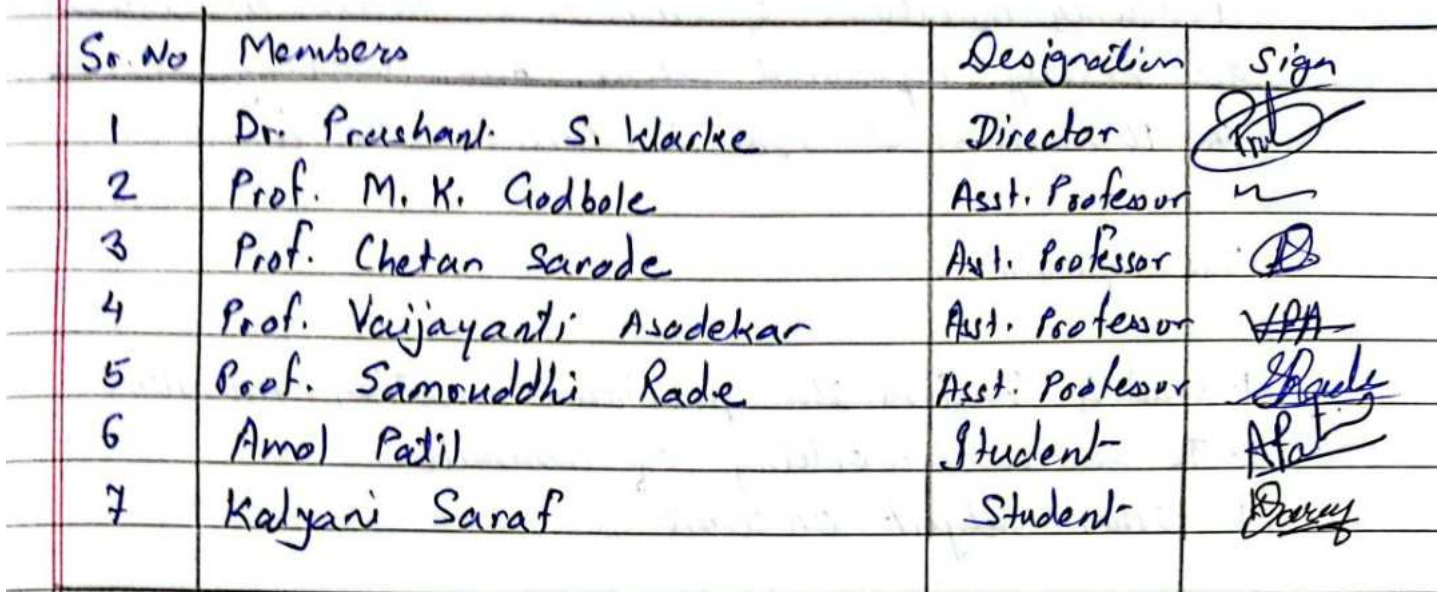 Sr. No Members Designation Sign
1 Dr. Prashant S. Warke Director
2 Prof. M. K. Godbole Asst. Professor
3 Prof. Chetan Sarode Asst. Professor
4 Prof. Vaijayanti Asodekar Asst. Professor VPA
5 Prof. Samruddhi Rade Asst. Professor
6 Amol Patil Student
7 Kalyani Saraf Student